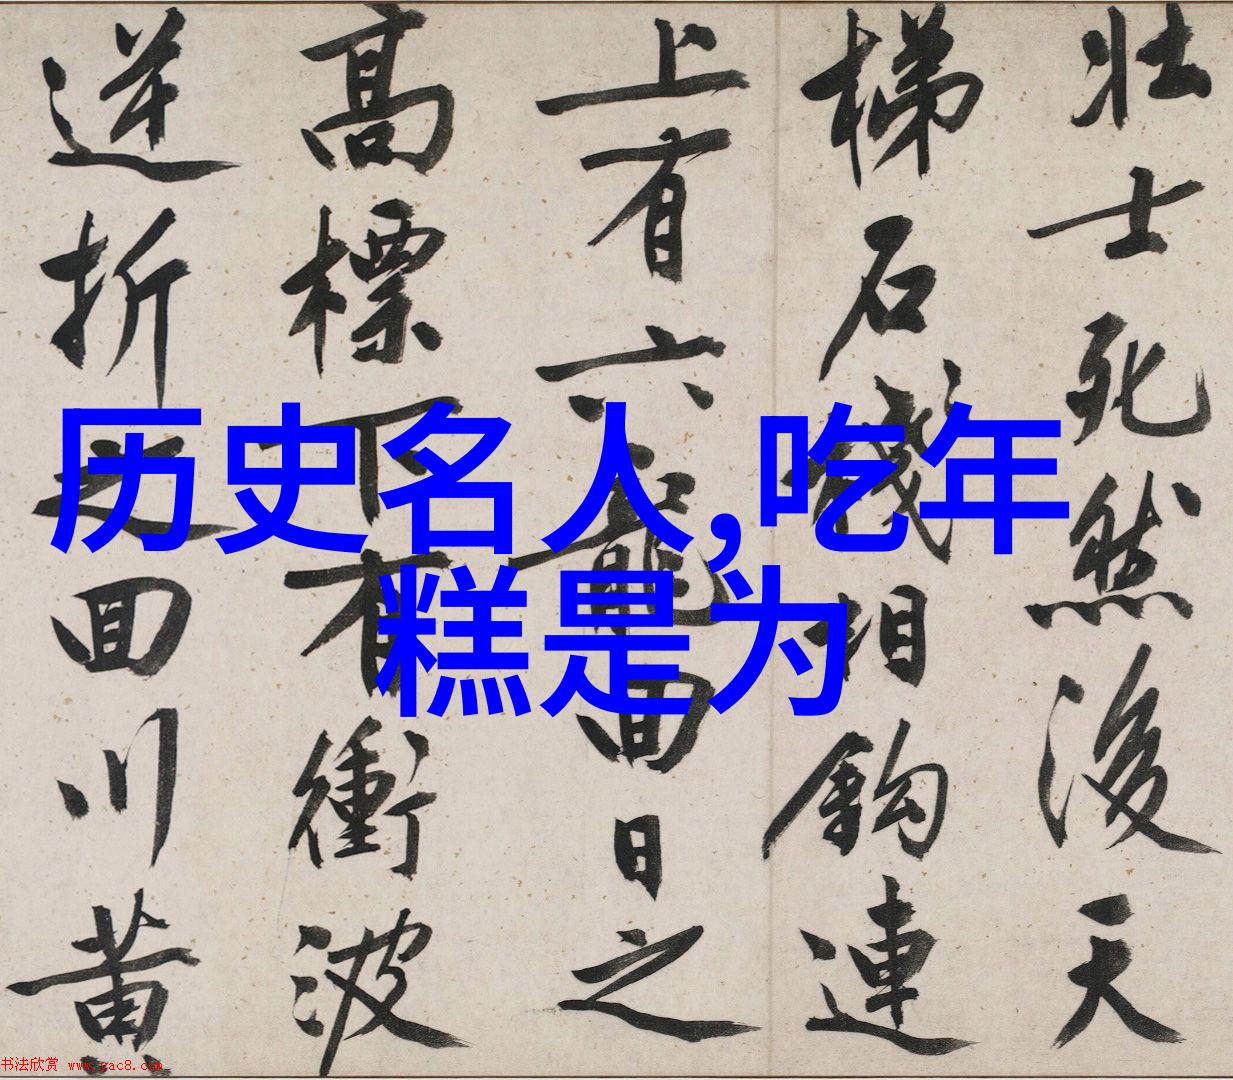 壮士死然後天
梯石棧相鈎連
上有六龍回日之
高標下有衝波
逆折之回川黄
历史名人,吃年
糕是为
书法欣赏 www.yac8.com